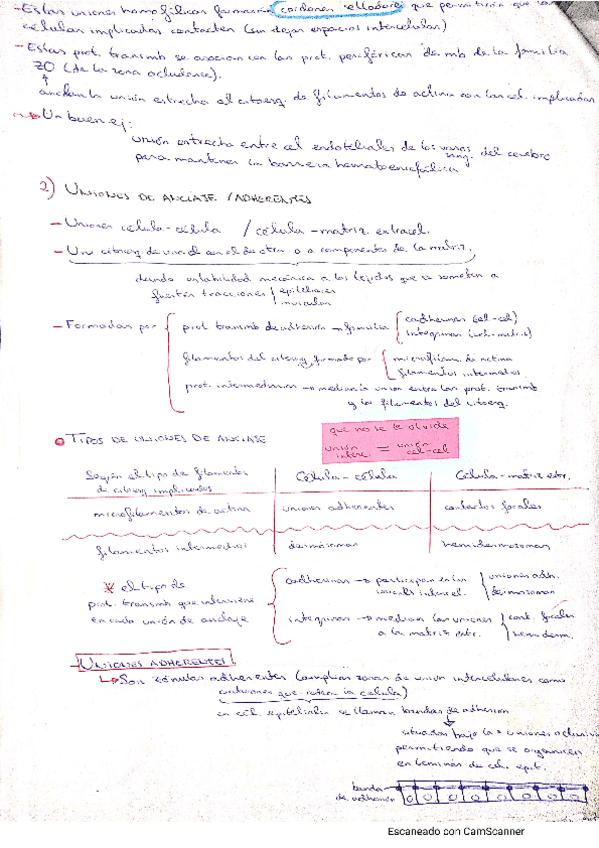 - Estas uniones homofílicas formarán cordones selladores que permitirán que las
células implicadas contacten (sin dejar espacios intercelulares)
- Estas prot. transmb se asocian con las prot. periféricas de mb de la familia
ZO (de la zona ocludens).
anclan la unión estrecha al citoesq. de filamentos de actina con las cel. implicadas
Un buen ej:
unión estrecha entre cel endoteliales de los vasos sang. del cerebro
para mantener la barrera hematoencefálica
2) UNIONES DE ANCLAJE / ADHERENTES
- Uniones célula-célula / célula-matriz extracel.
- Une citoesq de una cel con el de otra o a componentes de la matriz.
dando estabilidad mecánica a los tejidos que se someten a
fuertes tracciones epiteliares
muscular
- Formadas por prot transmb de adhesión → familias cadherinas (cel-cel)
integrinas (cel-matriz)
filamentos del citoesq. formado por microfilam. de actina
filamentos intermedios
prot. intermediarias → median la unión entre las prot. transmb
y los filamentos del citoesq.
TIPOS DE UNIONES DE ANCLAJE
que no se te olvide
unión interc. = unión cel-cel
Según el tipo de filamentos Célula-célula Célula-matriz extr.
de citoesq implicados
microfilamentos de actina uniones adherentes contactos focales
filamentos intermedios desmosomas hemidesmosomas
* el tipo de
prot. transmb que interviene
en cada unión de anclaje
cadherinas → participan en las uniones adh.
uniones intercel. desmosomas
integrinas → median las uniones cont. focales
a la matriz extr. hemidesm.
- UNIONES ADHERENTES
↳ Son zónulas adherentes (amplias zonas de unión intercelulares como
cinturones que rodean la célula)
en cél. epiteliales se llaman bandas de adhesión
situadas bajo las uniones oclusivas
permitiendo que se organicen
en láminas de cél. epit.
banda
de adhesión
Escaneado con CamScanner